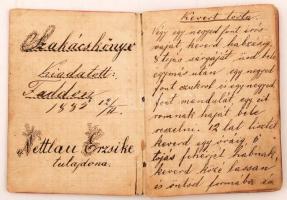 Szakácskönyv
Kiadatott:
Faddon
1885 12/II.
Nettlau Erzsike
tulajdona.
Kevert torta.
Végy egy negyed font írós
vajat, keverd habzásig,
8 tojás sárgáját üsd bele
egymás után, egy negyed
font czukrot és egy negyed
font mandulát, egy czit
romnak haját bele
reszelni. 12 lat lisztet
keverd egy óráig, 6
tojás fehérjét habnak,
keverd hozzá lassan
és öntsd formába